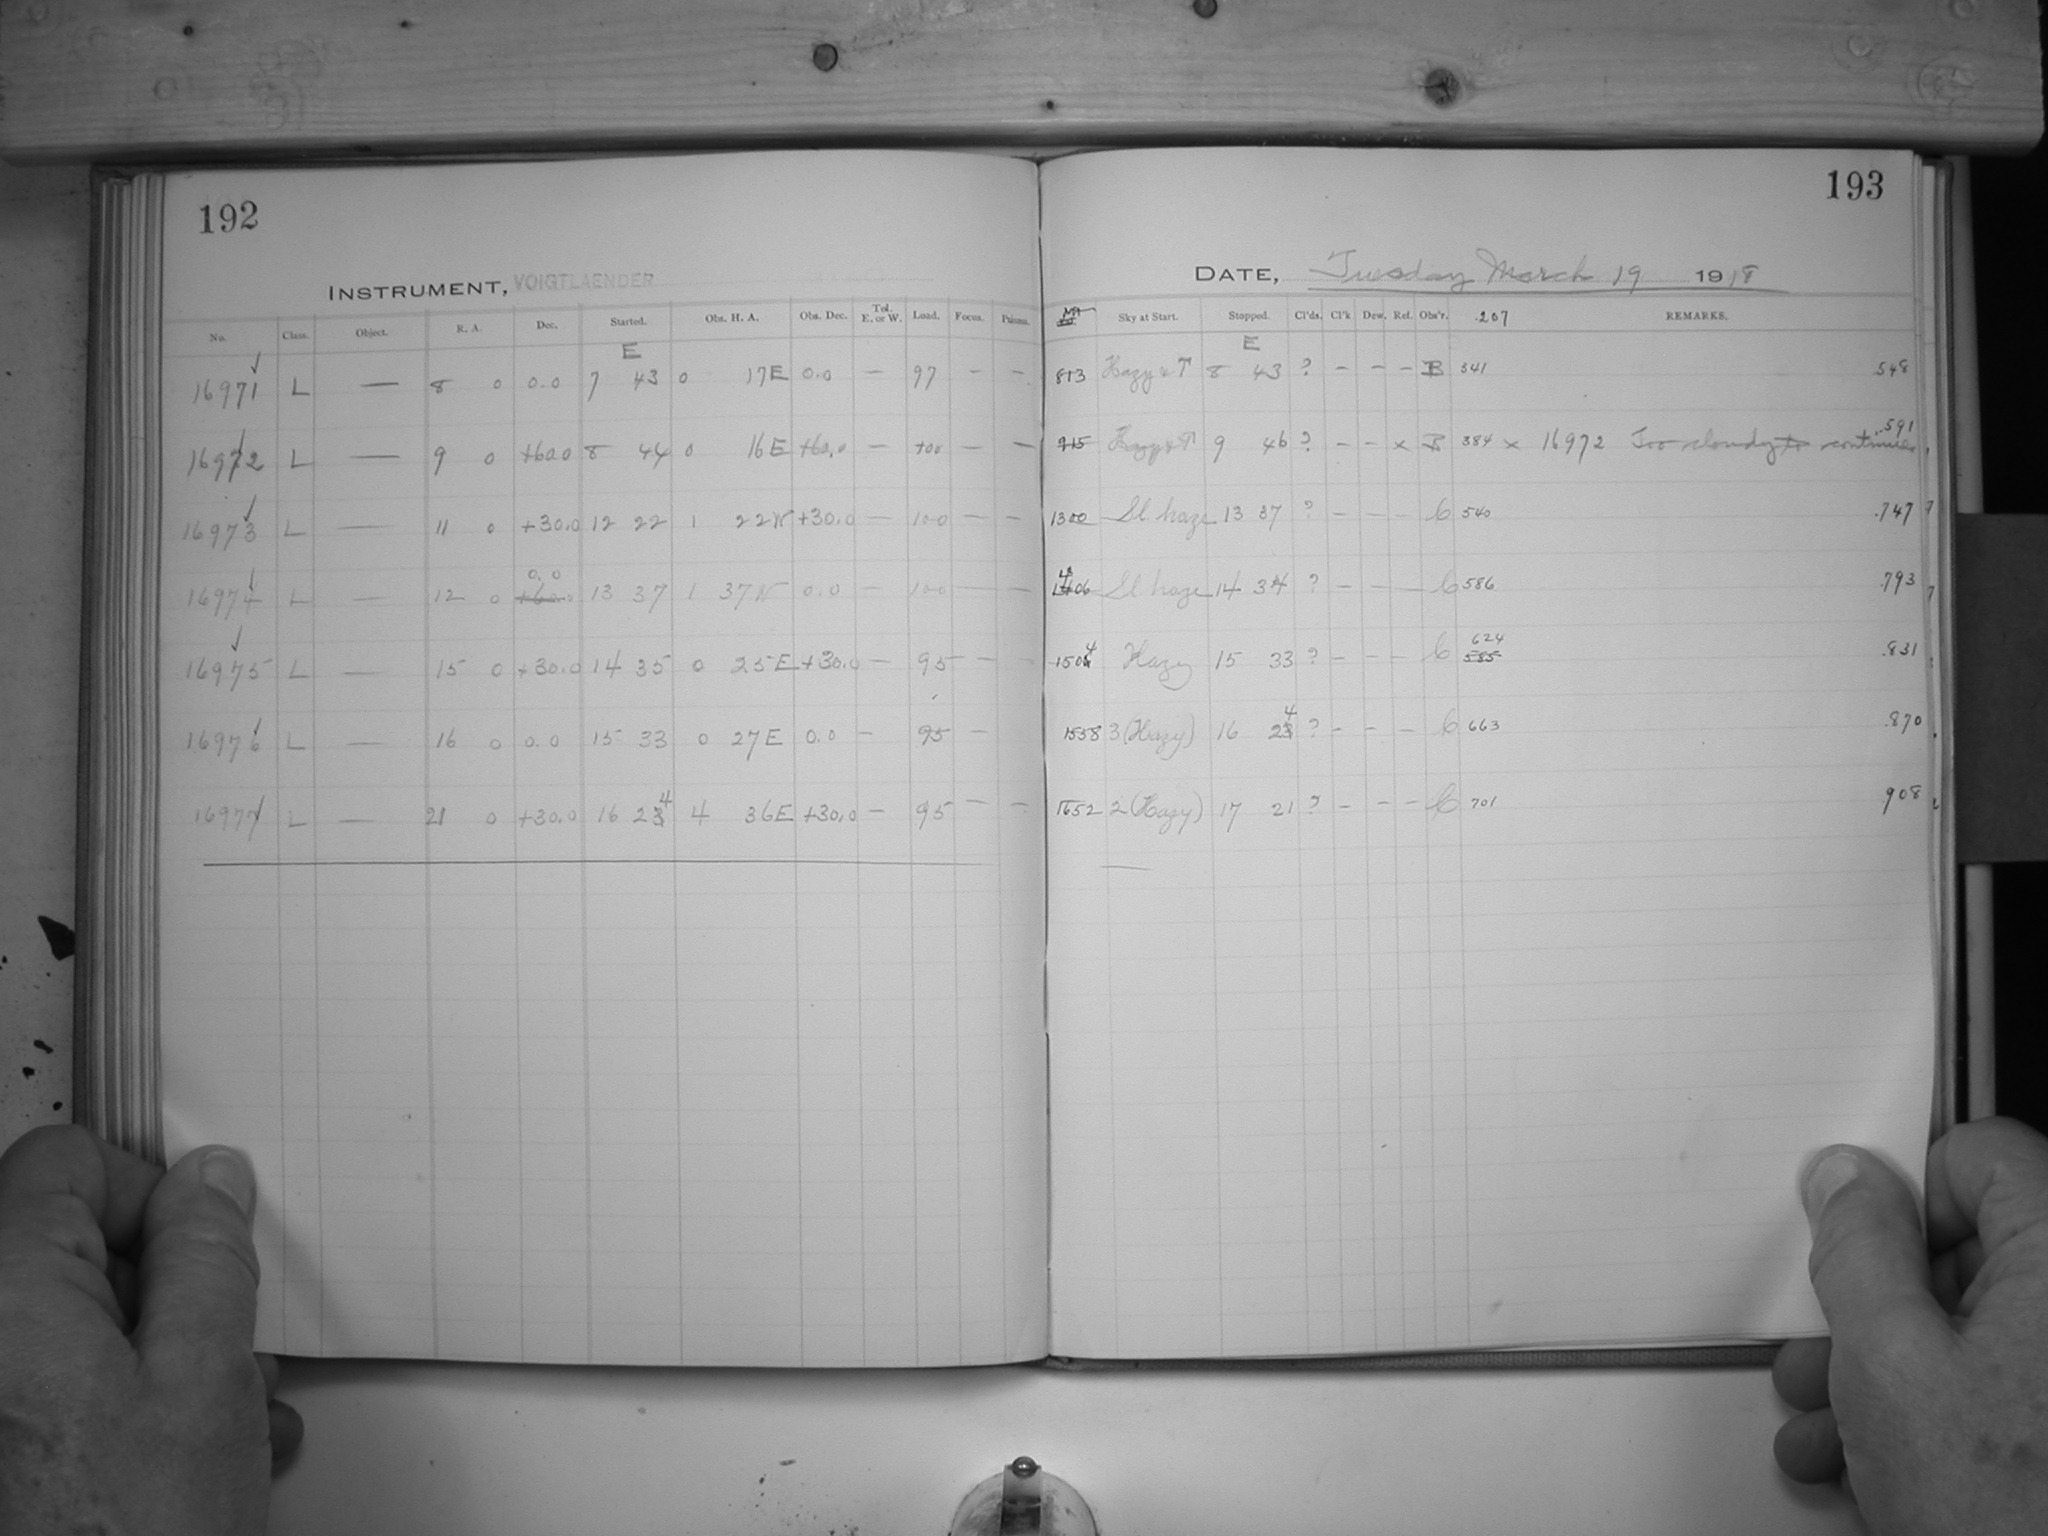 192
INSTRUMENT, VOIGTLAENDER
No. Class. Object. R. A. Dec. Started. Obs. H. A. Obs. Dec. Tel. E. or W. Load. Focus. Prisms.
E
16971 L — 8 0 0.0 7 43 0 17E 0.0 — 97 — —
16972 L — 9 0 +60.0 8 44 0 16E +60.0 — 100 — —
16973 L — 11 0 +30.0 12 22 1 22W +30.0 — 100 — —
0.0
16974 L — 12 0 +60.0 13 37 1 37W 0.0 — 100 — —
16975 L — 15 0 +30.0 14 35 0 25E +30.0 — 95 — —
16976 L — 16 0 0.0 15 33 0 27E 0.0 — 95 —
4
16977 L — 21 0 +30.0 16 23 4 36E +30.0 — 95 — —
193
DATE, Tuesday March 19 1918
Sky at Start. Stopped. Cl'ds. Cl'k Dew. Ref. Obs'r. .207 REMARKS.
E
813 Hazy & ↑ 8 43 ? — — — B 341 548
.591
915 Hazy & ↑ 9 46 ? — — x B 384 x 16972 Too cloudy to continue
1300 Sl haze 13 37 ? — — — C 540 .747
4
1406 Sl haze 14 34 ? — — — C 586 .793
4 624
150 Hazy 15 33 ? — — — C 585 .831
4
1558 3 (Hazy) 16 23 ? — — — C 663 .870
1652 2 (Hazy) 17 21 ? — — — C 701 908